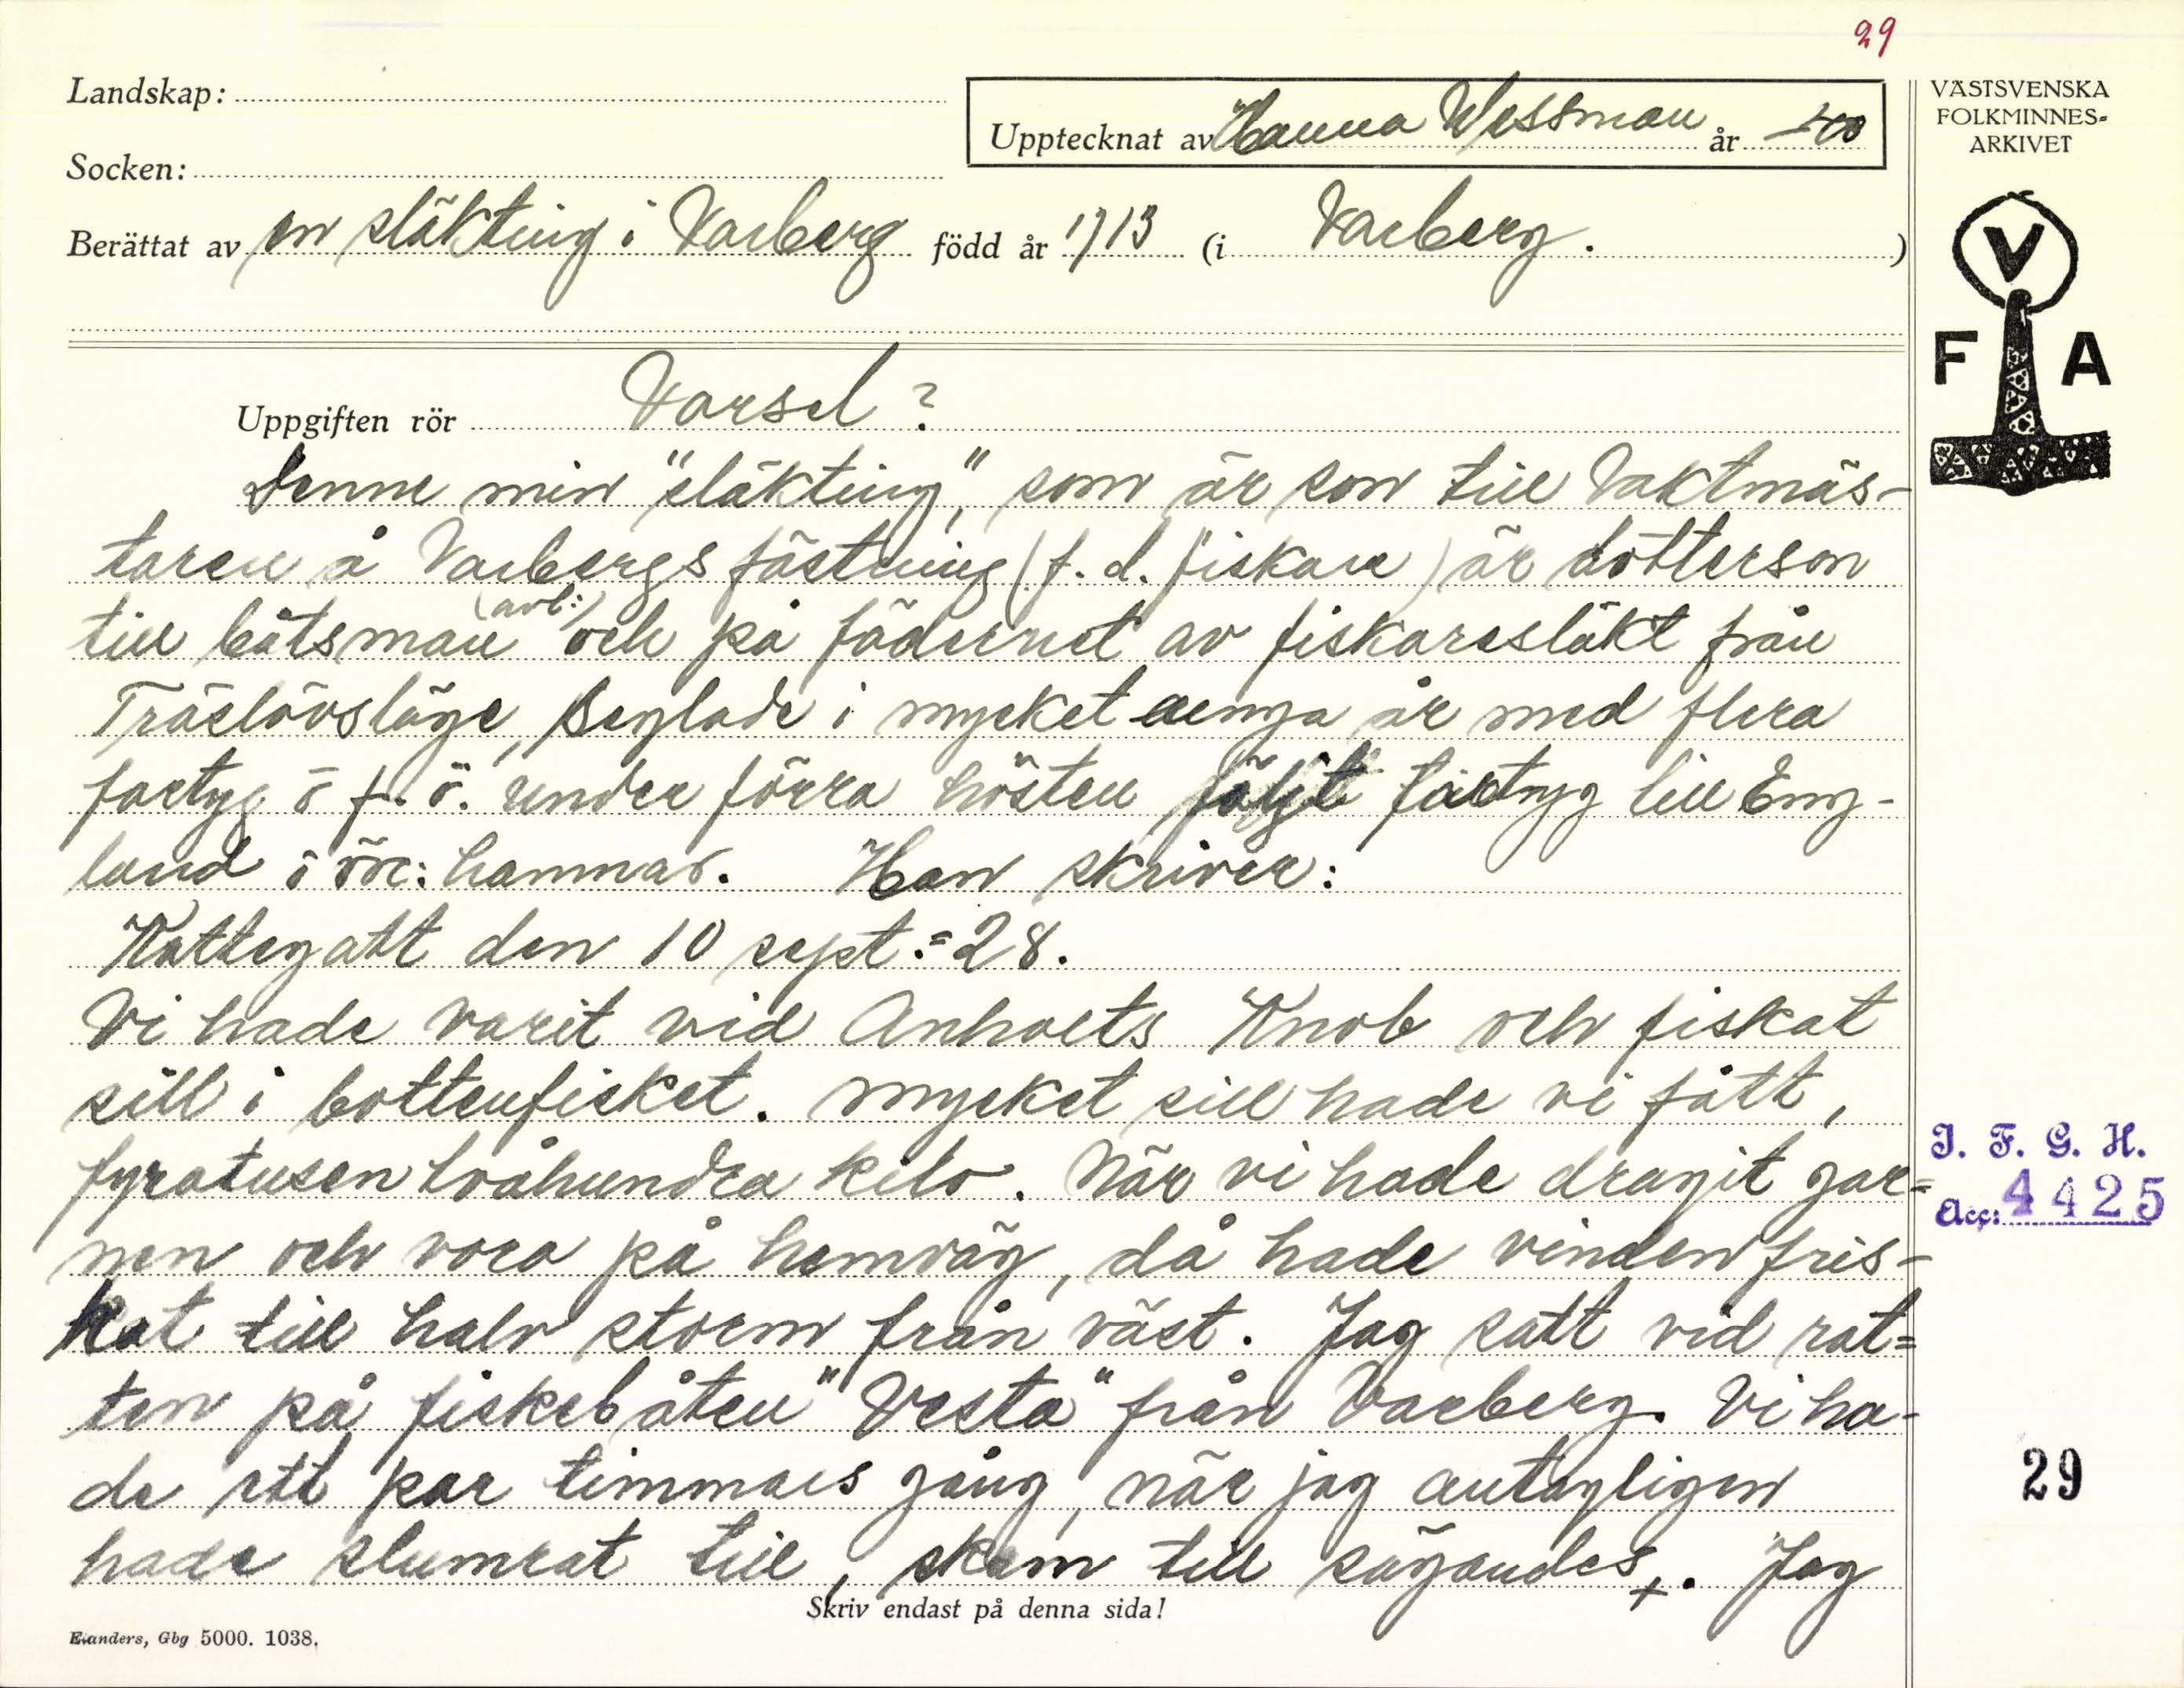 29
Landskap:
Upptecknat av Hanna Wessman år 40
VÄSTSVENSKA
FOLKMINNES-
ARKIVET
Socken:
Berättat av en släkting i Varberg född år 1913 (i Varberg.)
V
F A
Uppgiften rör Varsel?
Denne min "släkting", som är son till Vaktmäs-
taren å Varbergs fästning (f.d. fiskare) är dotterson
till båtsman (avl:) och på fädernet av fiskaresläkt från
Träslövsläge, Seglade i mycket unga år med flera
fartyg o f.ö. under förra hösten följt fartyg till Eng-
land o hamnar. Han skriver:
Kattegatt den 10 sept.=28.
Vi hade varit vid Anholts Knob och fiskat
sill i bottenfisket. Mycket sill hade vi fått,
fyratusen tvåhundra kilo. När vi hade dragit gar=
nen och voro på hemväg, då hade vinden fris-
kat till halv storm från väst. Jag satt vid rat=
ten på fiskebåten "Vesta" från Varberg. Vi ha-
de ett par timmars gång, när jag antagligen
hade slumrat till, skam till sägandes +. Jag
Skriv endast på denna sida!
Elanders, Gbg 5000. 1038.
I. F. G. H.
Acc: 4425
29